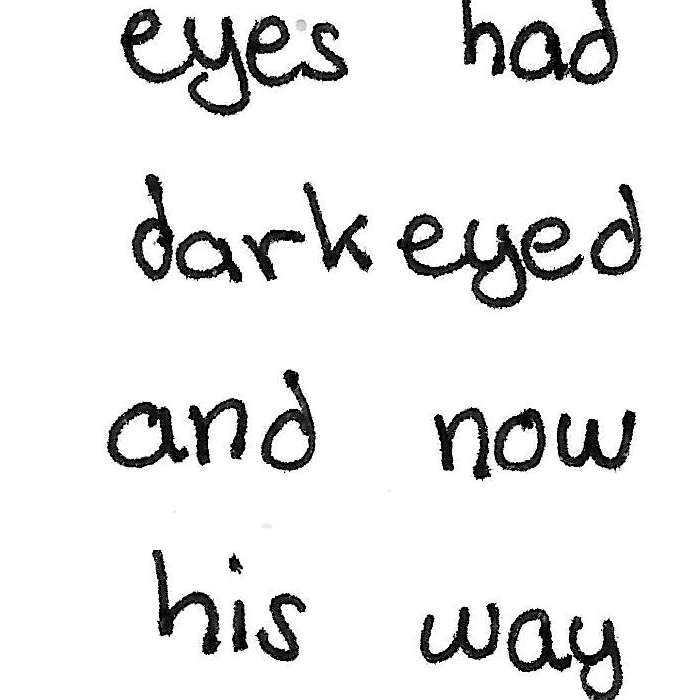 eyes had
dark eyed
and now
his way